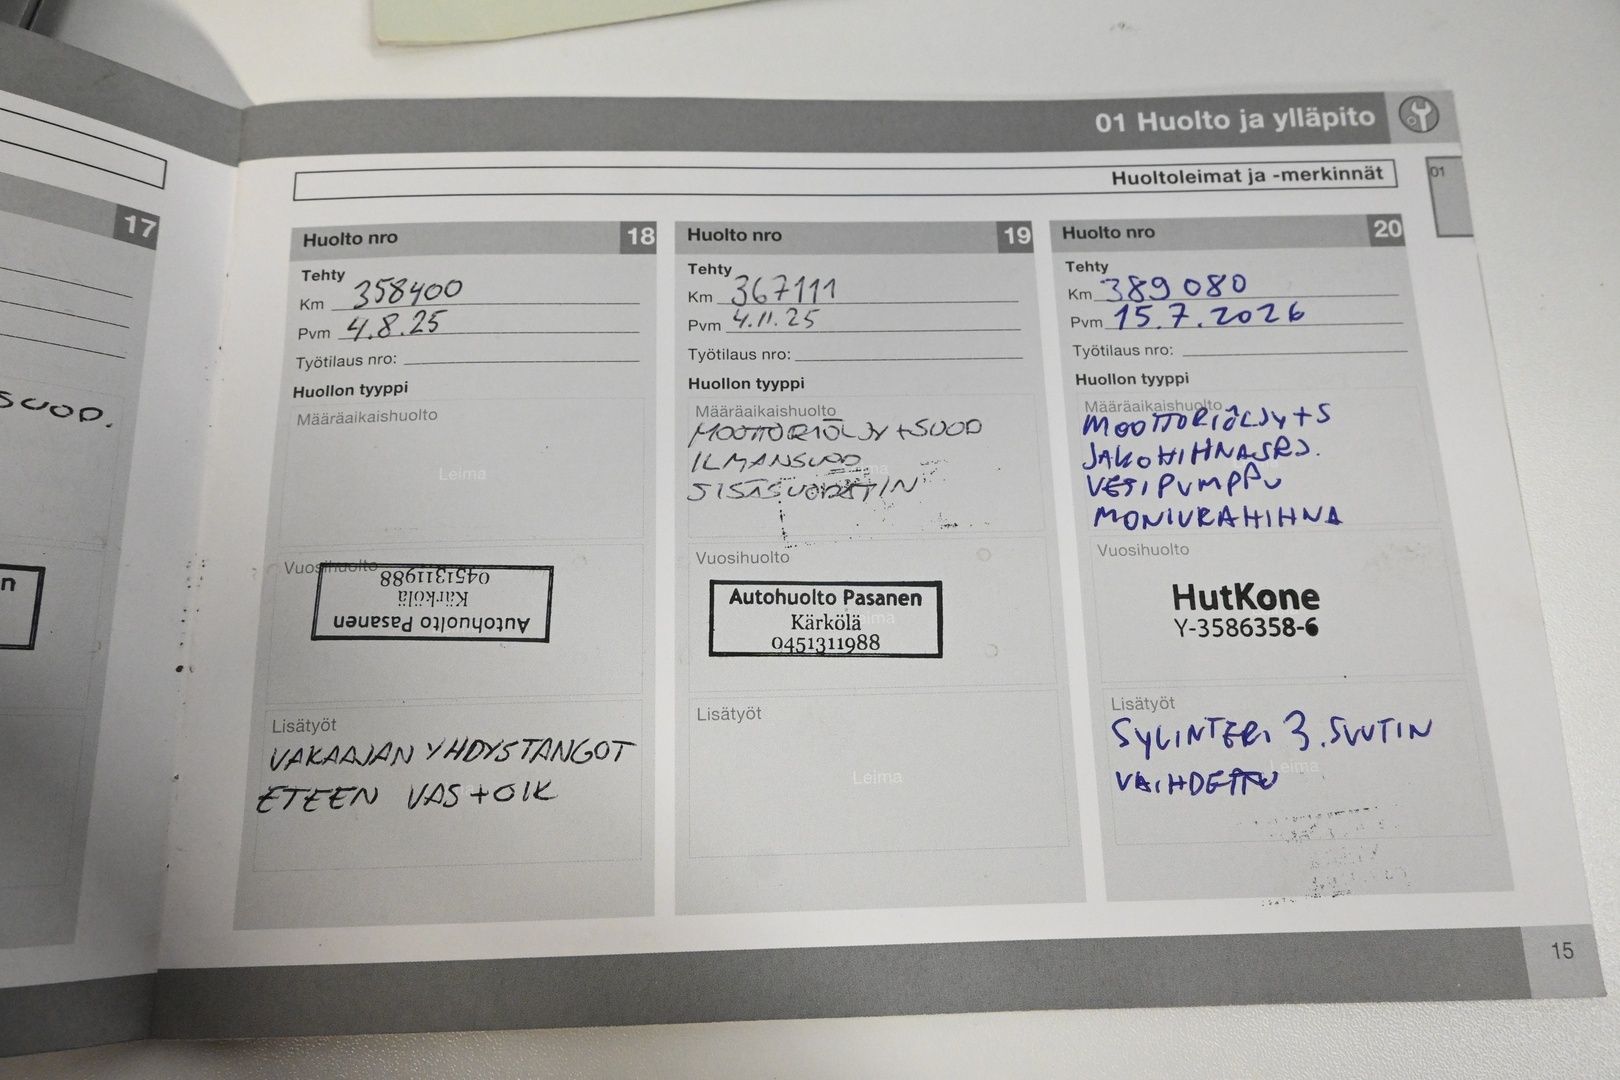 01 Huolto ja ylläpito
Huoltoleimat ja -merkinnät
01
17
SUOD.
n
Huolto nro 18
Tehty
Km 358400
Pvm 4.8.25
Työtilaus nro:
Huollon tyyppi
Määräaikaishuolto
Leima
Vuosihuolto
Autohuolto Pasanen
Kärkölä
0451311988
Lisätyöt
VAKAAJAN YHDYSTANGOT
ETEEN VAS + OIK
Huolto nro 19
Tehty
Km 367111
Pvm 4.11.25
Työtilaus nro:
Huollon tyyppi
Määräaikaishuolto
MOOTTORIÖLJY + SUOD
ILMANSUOD
SISÄSUODATIN
Vuosihuolto
Autohuolto Pasanen
Kärkölä
0451311988
Lisätyöt
Leima
Huolto nro 20
Tehty
Km 389 080
Pvm 15.7.2026
Työtilaus nro:
Huollon tyyppi
Määräaikaishuolto
MOOTTORIÖLJY + S
JAKOHIHNASRJ.
VESIPUMPPU
MONIURAHIHNA
Vuosihuolto
HutKone
Y-3586358-6
Lisätyöt
SYLINTERI 3. SUUTIN
Leima
VAIHDETTU
15